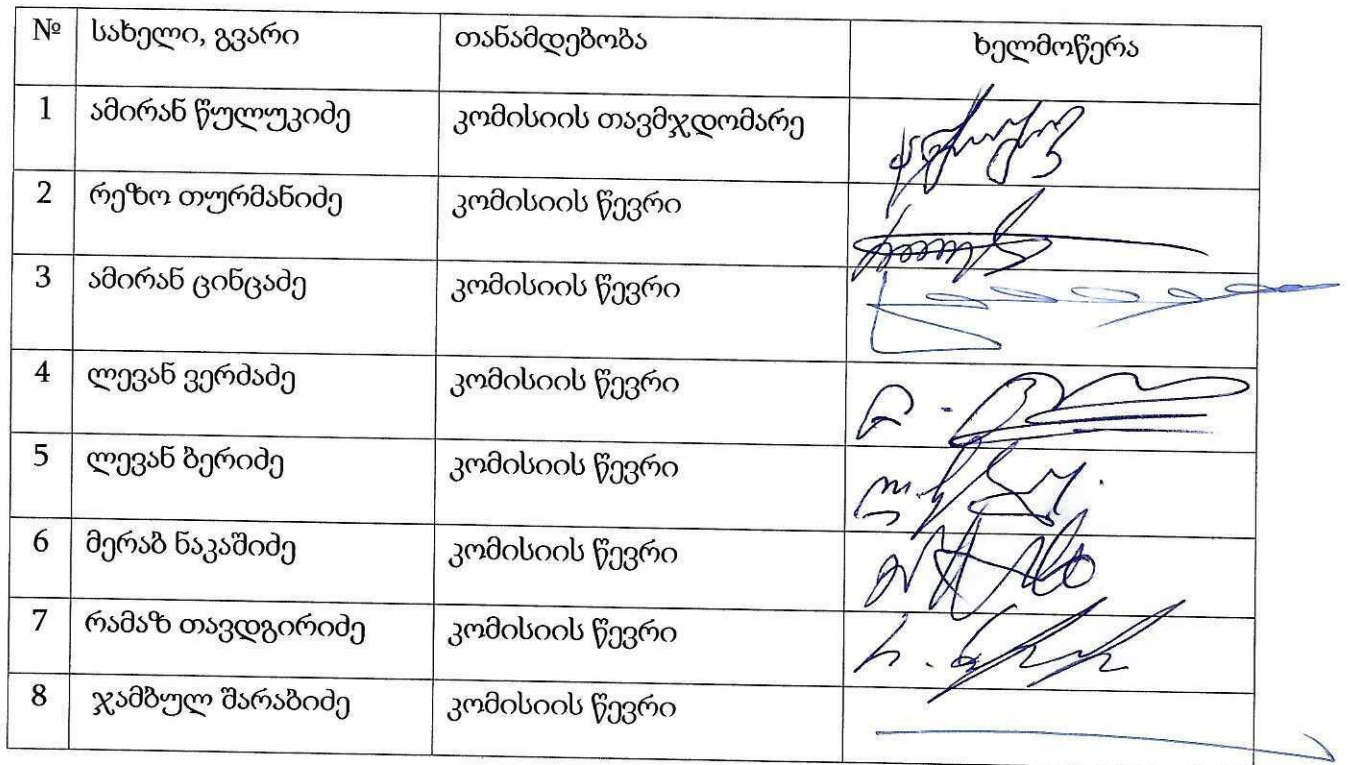 № სახელი, გვარი თანამდებობა ხელმოწერა
1 ამირან წულუკიძე კომისიის თავმჯდომარე
2 რეზო თურმანიძე კომისიის წევრი
3 ამირან ცინცაძე კომისიის წევრი
4 ლევან ვერძაძე კომისიის წევრი
5 ლევან ბერიძე კომისიის წევრი
6 მერაბ ნაკაშიძე კომისიის წევრი
7 რამაზ თავდგირიძე კომისიის წევრი
8 ჯამბულ შარაბიძე კომისიის წევრი